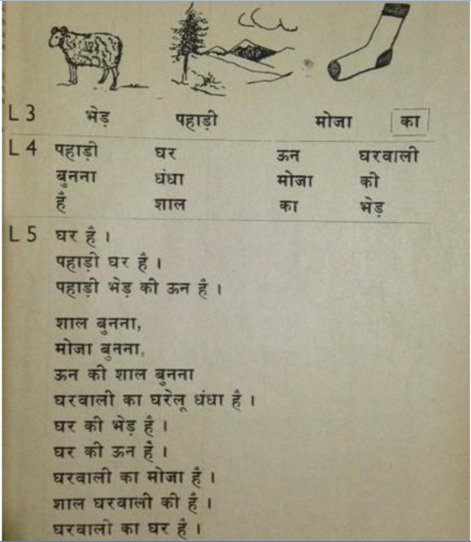 L 3 भेड़ पहाड़ी मोजा का
L 4 पहाड़ी घर ऊन घरवाली
बुनना धंधा मोजा की
है शाल का भेड़
L 5 घर है ।
पहाड़ी घर है ।
पहाड़ी भेड़ की ऊन है ।
शाल बुनना,
मोजा बुनना,
ऊन की शाल बुनना
घरवाली का घरेलू धंधा है ।
घर की भेड़ है ।
घर की ऊन है ।
घरवाली का मोजा है ।
शाल घरवाली की है ।
घरवाली का घर है ।